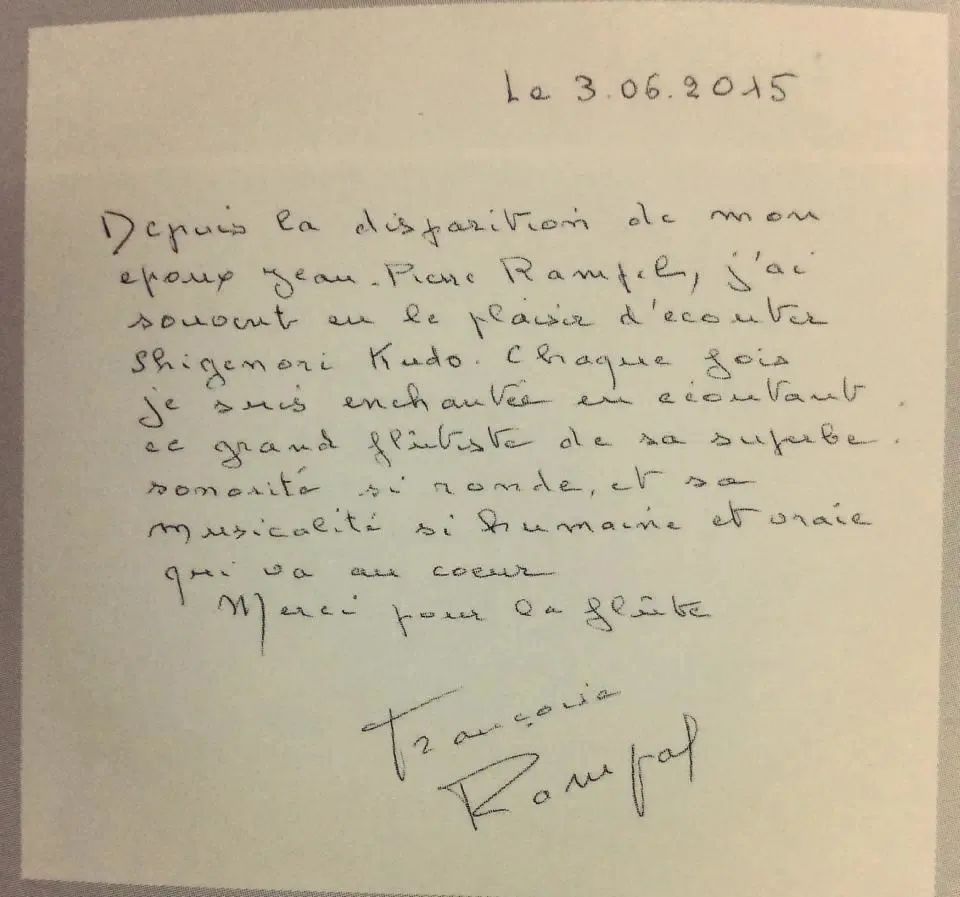 Le 3.06.2015
Depuis la disparition de mon
epoux Jean-Pierre Rampal, j'ai
souvent eu le plaisir d'ecouter
Shigenori Kudo. Chaque fois
je suis enchantée en ecoutant
ce grand flûtiste de sa superbe
sonorité si ronde, et sa
musicalité si humaine et vraie
qui va au coeur
Merci pour la flûte
Françoise
Rampal